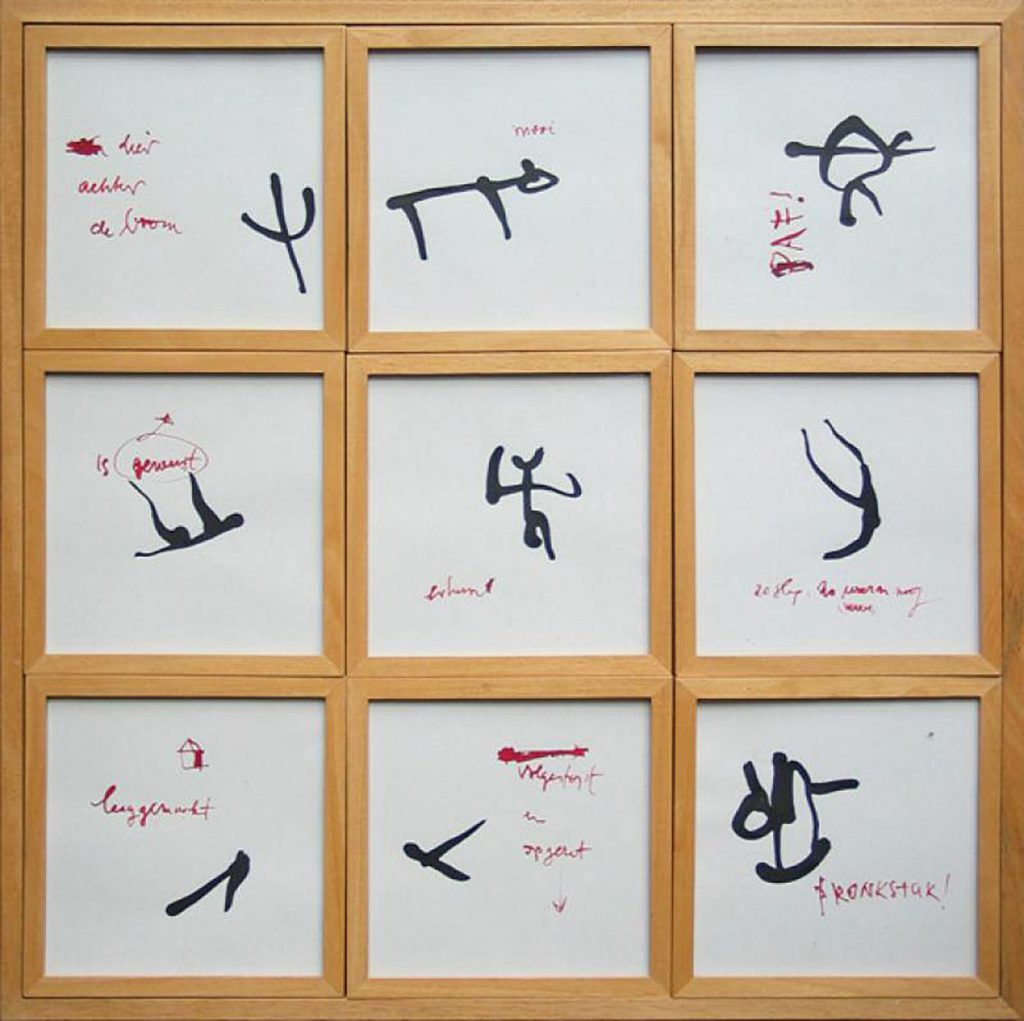 hier
achter
de boom
mooi
PATS!
is gewenst
erkend
zo slap. zo warm nog
leeggemaakt
volgestort
en
opgezet
PRONKSTUK!